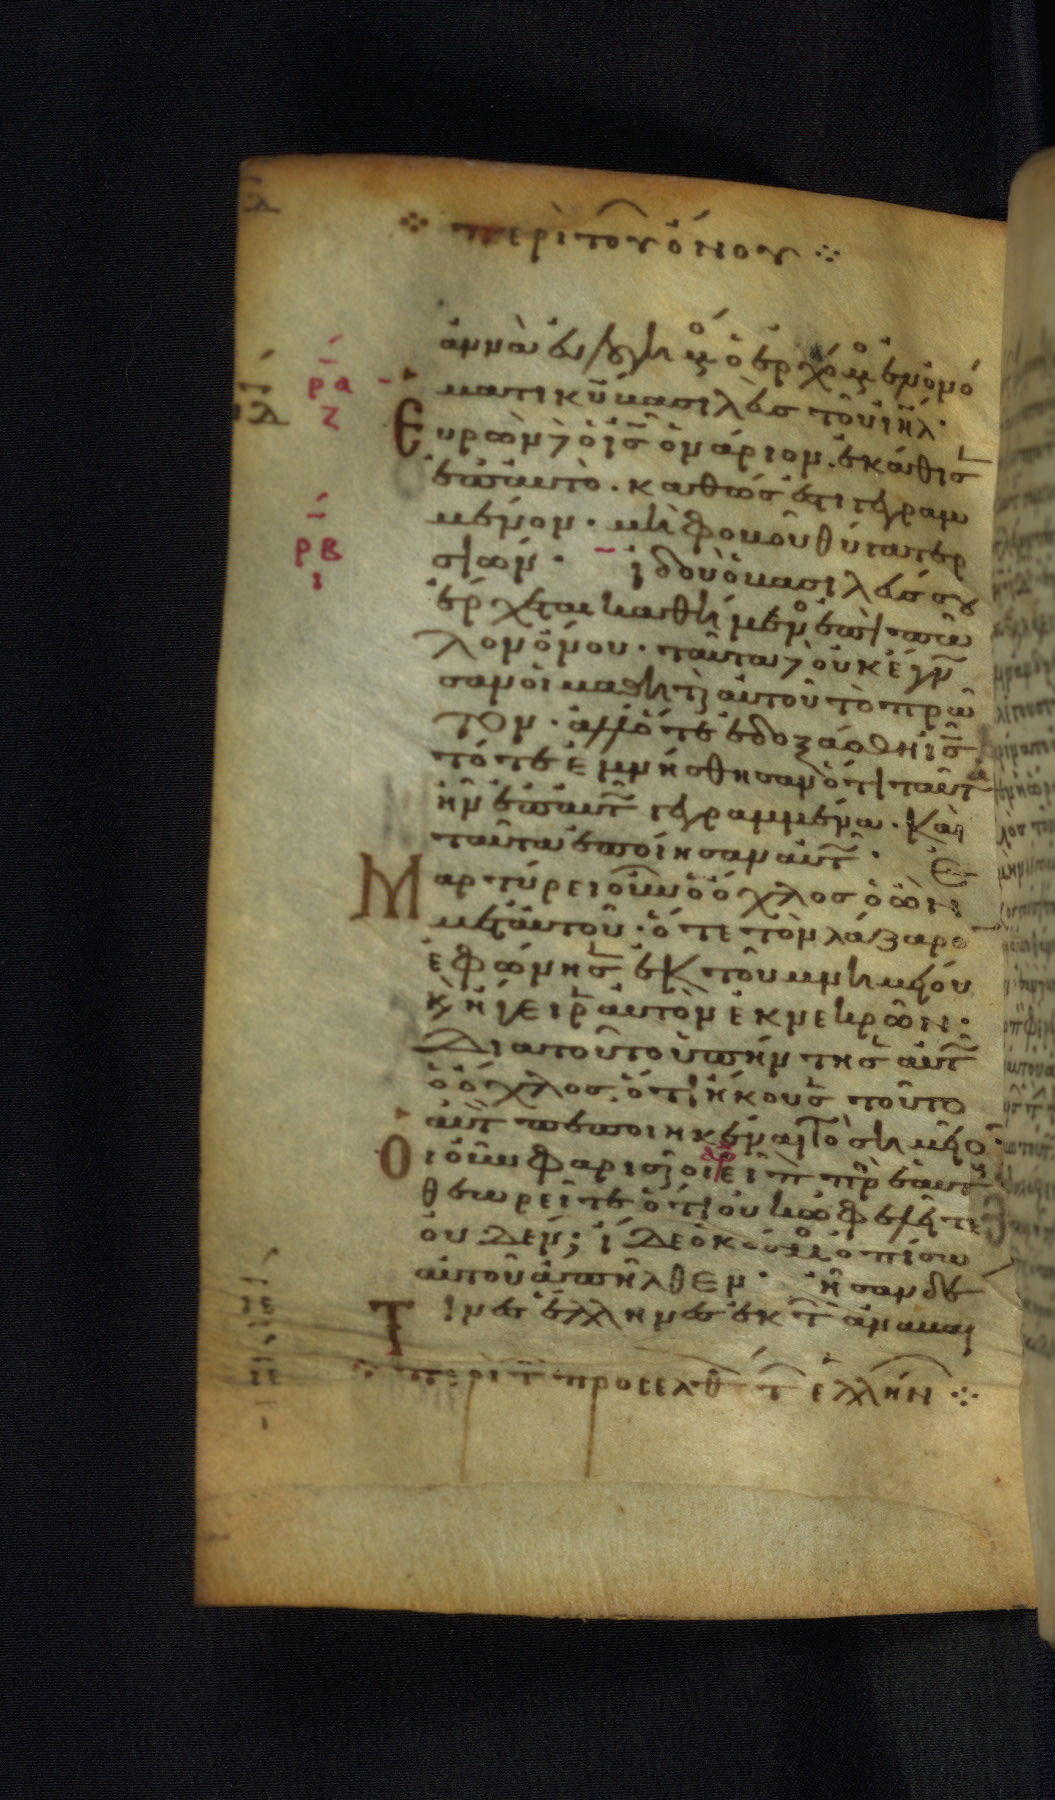 περὶ τοῦ ὄνου
ιδ
ρα
ζ
ρβ
ι
αννὰ εὐλογημένος ὁ ἐρχόμενος ἐν ὀνό
ματι κυ βασιλεὺσ τοῦ ιηλ.
Εὑρὼν δὲ ὁ ισ ὀνάριον. ἐκάθισεν
ἐπ αυτὸ. καθώς ἐστι γεγραμ
μένον. μὴ φοβοῦ θύγατερ
σιών. ἰδοὺ ὁ βασιλεύσ σου
ἔρχεται καθήμενος ἐπὶ πῶ
λον ὄνου. ταῦτα δὲ οὐκ ἔγνω
σαν οἱ μαθηταὶ αυτοῦ τὸ πρῶ
τον. ἀλλ ὅτε ἐδοξάσθη ισ
τότε ἐμνήσθησαν ὅτι ταῦτα
ἦν ἐπ αυτῶ γεγραμμένα. Καὶ
ταῦτα ἐποίησαν αυτῶ.
Μαρτύρει οὖν ὁ ὄχλοσ ὁ ὢν
μετ αυτοῦ. ὅτε τὸν λάζαρο
ἐφώνησεν ἐκ τοῦ μνημείου
καὶ ἤγειρεν αυτὸν ἐκ νεκρῶν.
Διὰ τοῦτο ὑπήντησεν αυτῶ
ὁ ὄχλοσ. ὅτι ἤκουσεν τοῦτο
αυτὸν πεποιηκέναι τὸ σημεῖο
Οἱ οὖν φαρισαῖοι εἶπον πρὸς ἑαυτοὺς
θεωρεῖτε ὅτι οὐκ ὠφελεῖτε
οὐδέν; ἴδε ὁ κόσμος ὀπίσω
αυτοῦ ἀπῆλθεν. ἦσαν δέ
Τινεσ ἕλληνεσ ἐκ τῶν ἀναβαι
ιε
περὶ τῶν προσελθόντων ἑλλήνων